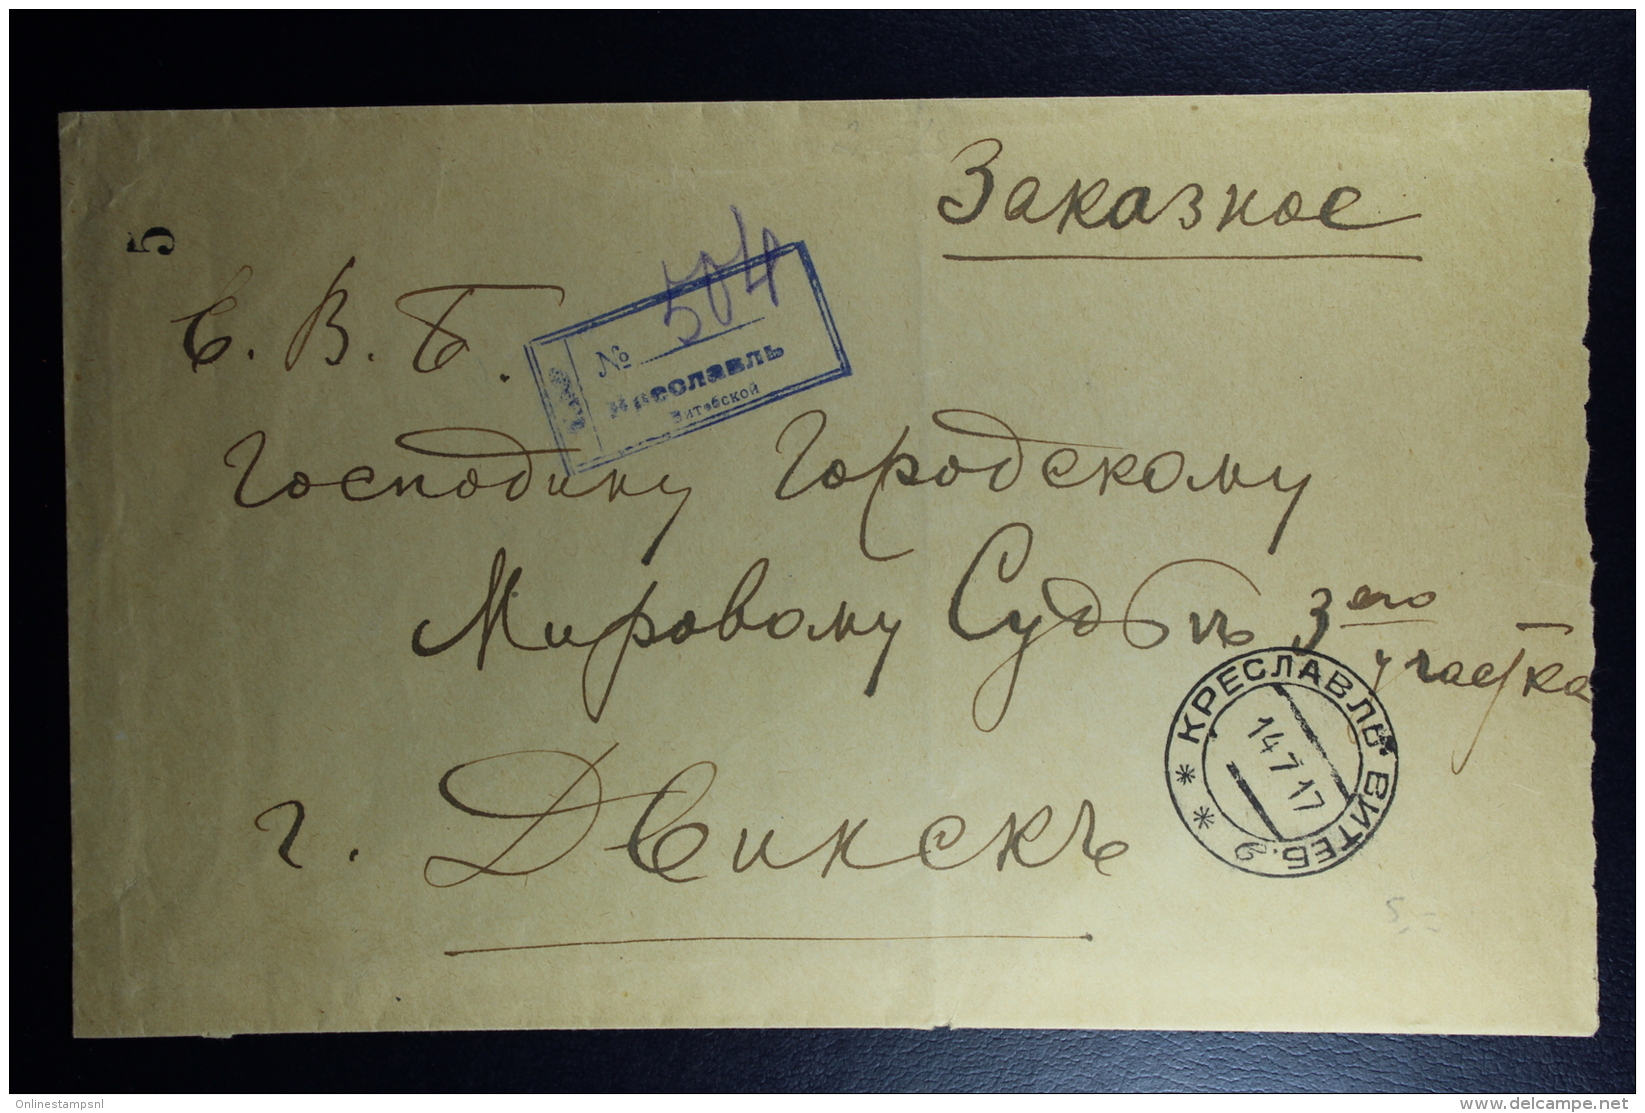 Заказное
5
Е. В. Б.
№ 504
Креславль
Витебской
Господину Городскому
Мировому Судьѣ 3его
участка
г. Двинскъ
КРЕСЛАВЛЬ ВИТЕБ.
14 7 17
5,-
Onlinestampsnl
www.delcampe.net